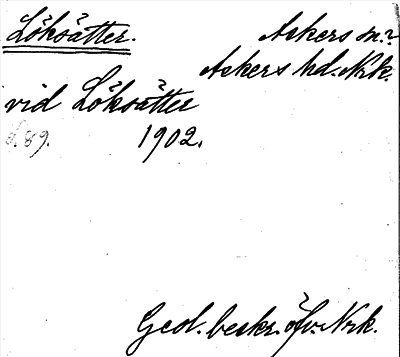 Löksätter.
Askers sn.?
Askers hd. Nrk.
vid Löksätter
s. 89. 1902.
Geol. beskr. öfv. Nrk.